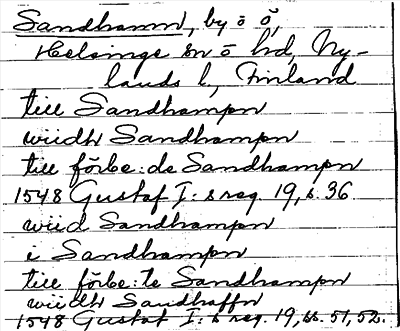 Sandhamn, by ō ö,
Helsinge sn ō hd, Ny-
lands l, Finland
till Sandhampn
wiidh Sandhampn
till förbe:de Sandhampn
1548 Gustaf I:s reg. 19, s. 36
wiid Sandhampn
i Sandhampn
till förbe:te Sandhampn
wiidh Sandhaffn
1548 Gustaf I:s reg. 19, ss. 51, 52.